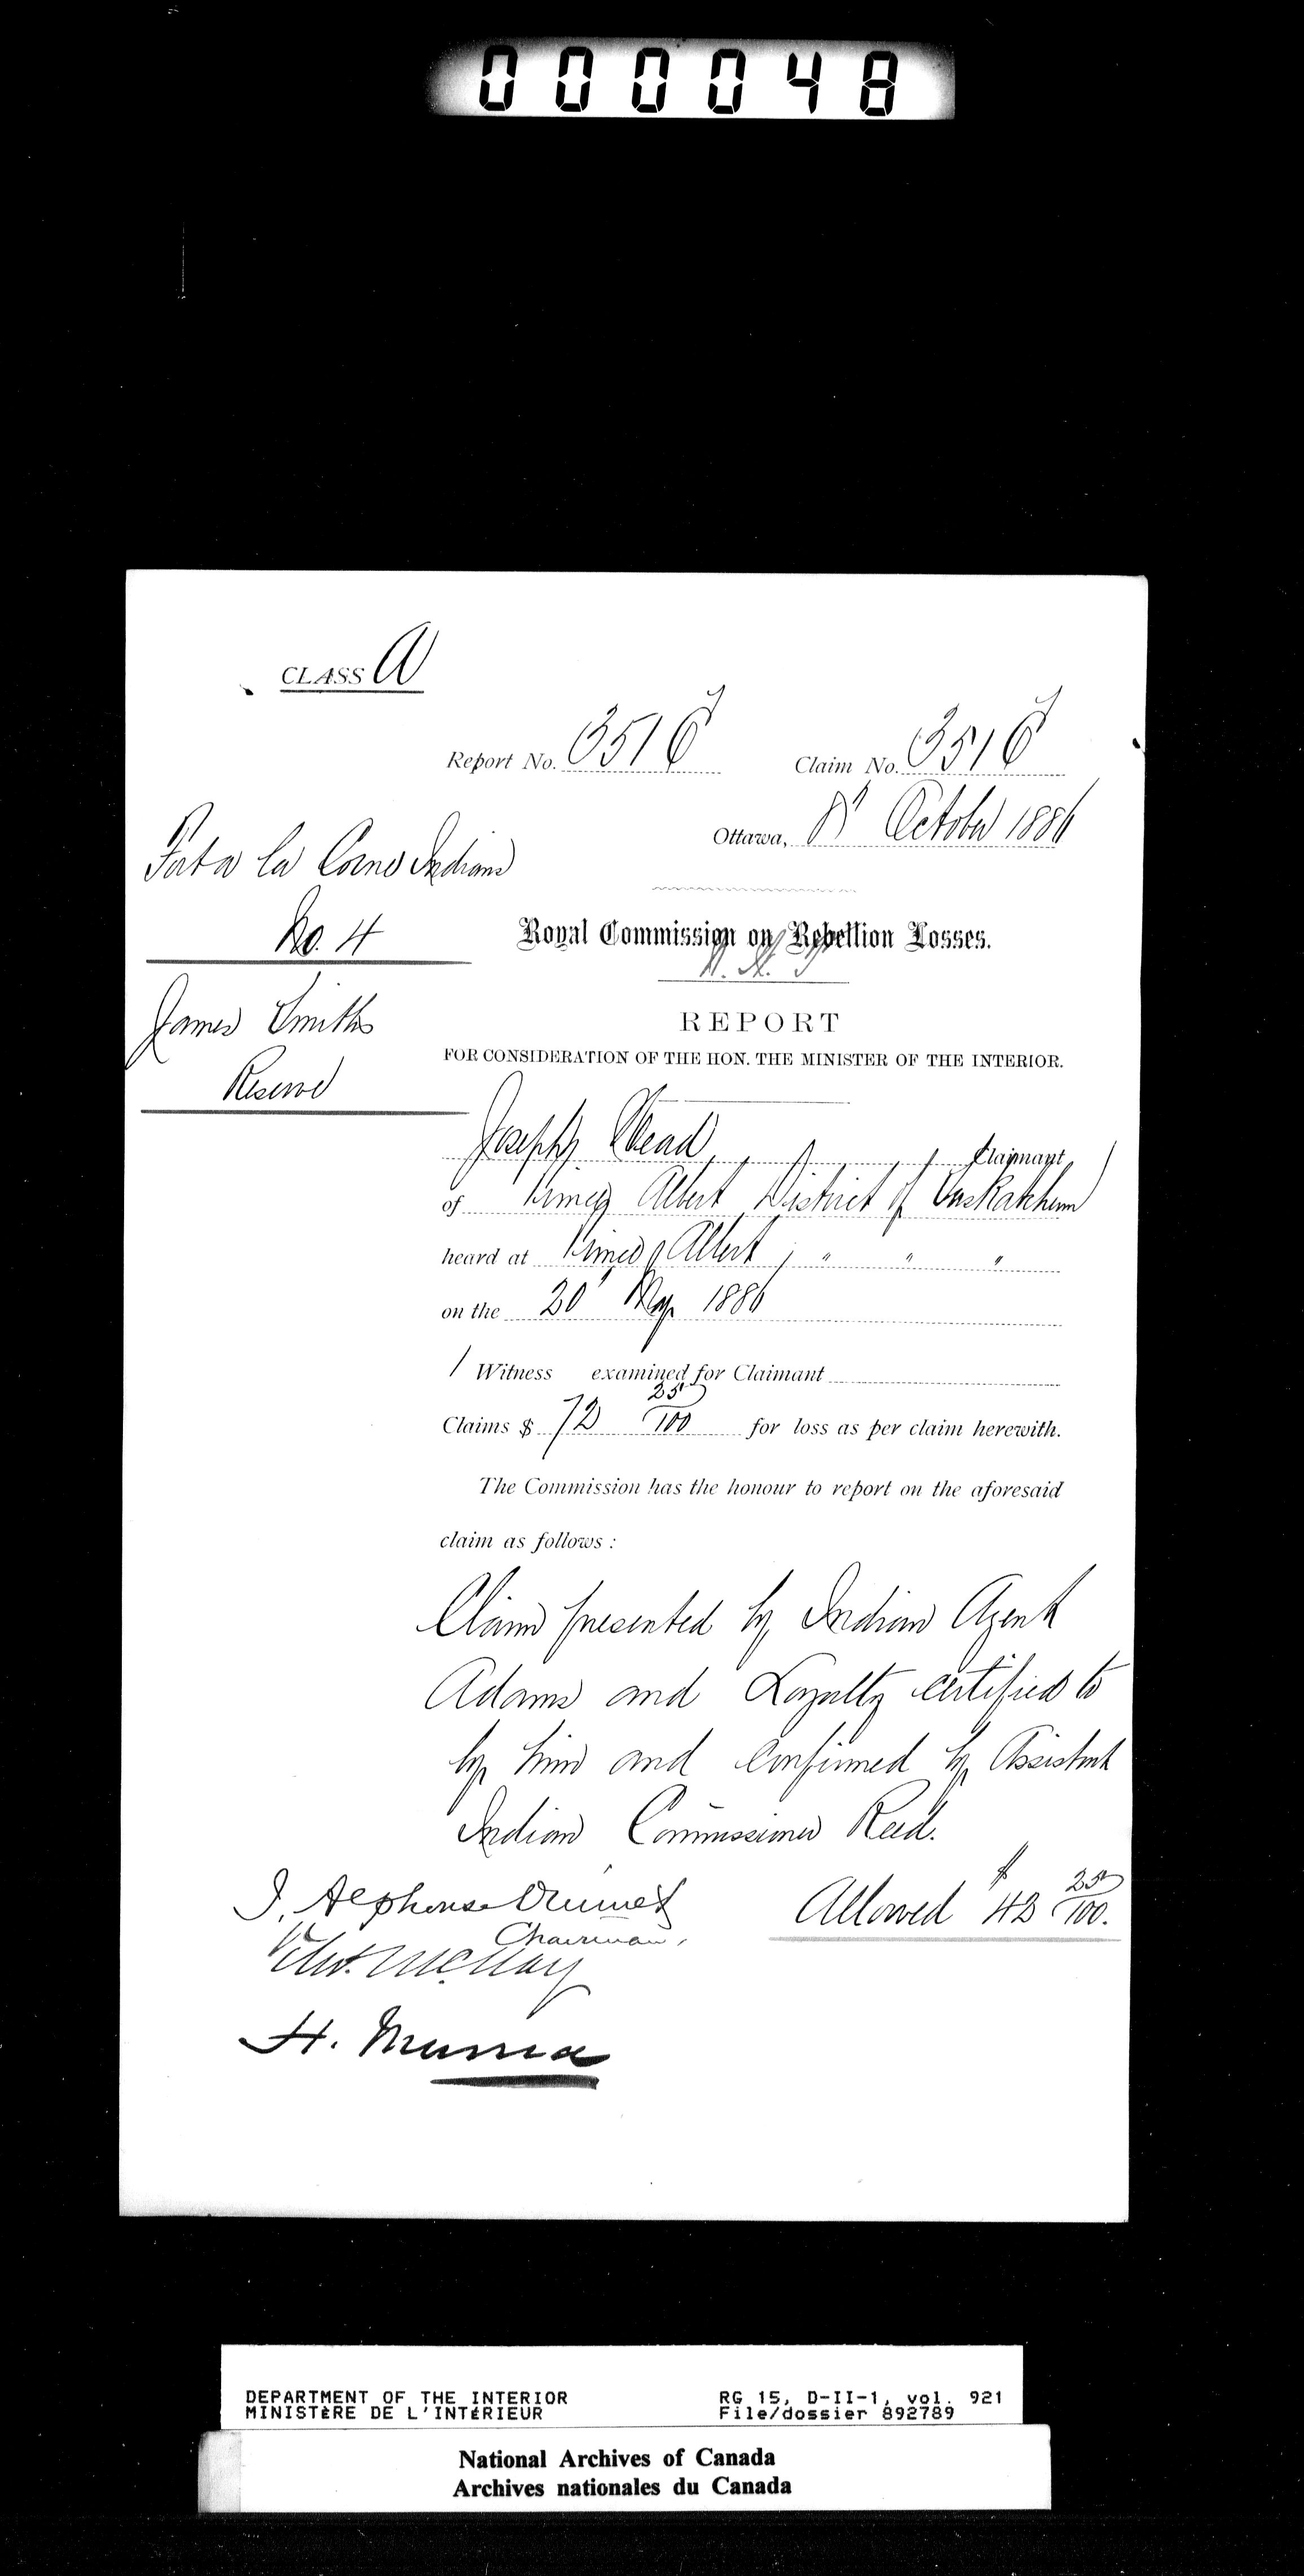 000048
CLASS A
Report No. 351 6
Claim No. 351 6
Ottawa, 8th October 1886
Fort a la Corne Indians
No. 4
Royal Commission on Rebellion Losses.
N. W. T.
James Smiths
REPORT
FOR CONSIDERATION OF THE HON. THE MINISTER OF THE INTERIOR.
Reserve
Joseph Head, Claimant
of Prince Albert District of Saskatchewan
heard at Prince Albert, " " "
on the 20th May 1886
1 Witness examined for Claimant
Claims $ 72 25/100 for loss as per claim herewith.
The Commission has the honour to report on the aforesaid
claim as follows :
Claim presented by Indian Agent
Adams and Loyalty certified to
by him and confirmed by Assistant
Indian Commissioner Reed.
Allowed $ 42 25/100.
J. Alphonse Ouimet
Chairman,
H. Muma
DEPARTMENT OF THE INTERIOR
MINISTÈRE DE L'INTÉRIEUR
RG 15, D-II-1, vol. 921
File/dossier 892789
National Archives of Canada
Archives nationales du Canada